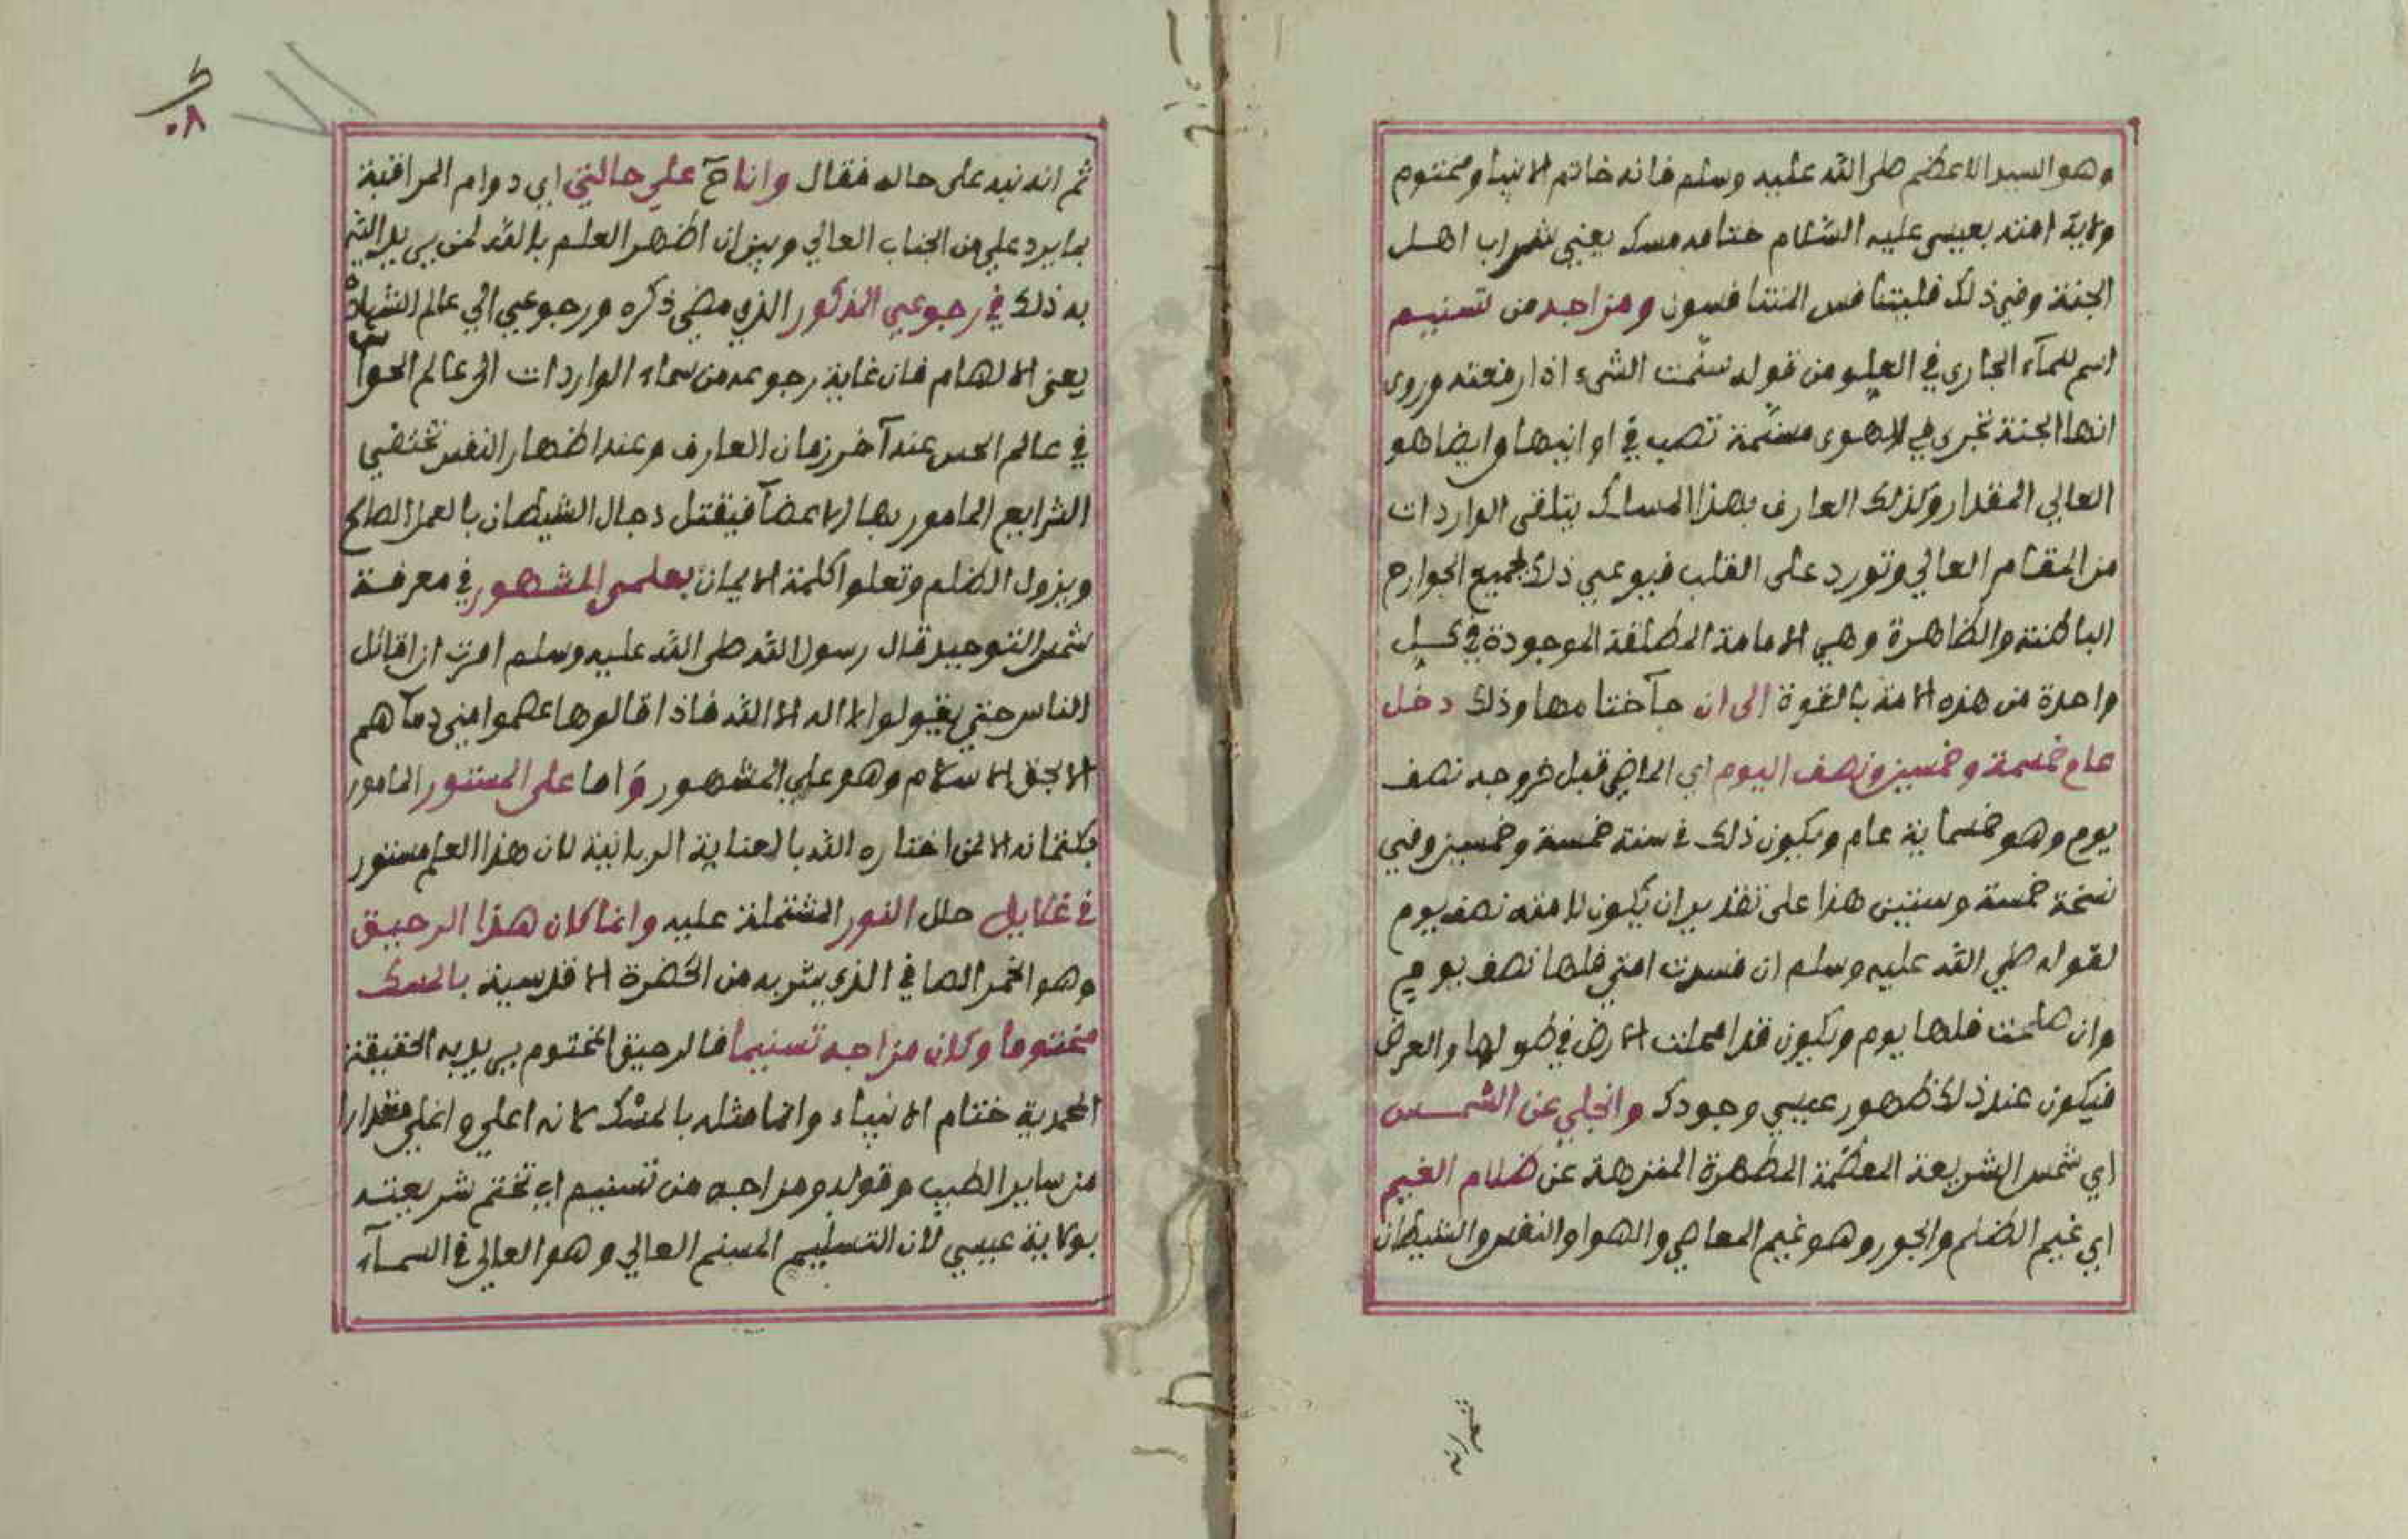 وهو السيد الاعظم صلى الله عليه وسلم فانه خاتم الانبيا ومختوم
ولاية امته بعيسى عليه السلام ختامه مسك يعني شراب اهل
الجنة وفي ذلك فليتنافس المتنافسون ومزاجه من تسنيم
اسم للماء الجاري في العلو من قوله سنّمت الشيء اذا رفعته وروى
انها الجنة تجري في الهوى مسنّمة تصب في اوانيها وايضا هو
العالي المقدار وكذلك العارف بهذا المساك يتلقى الواردات
من المقام العالي وتورد على القلب فيوعي ذلك لجميع الجوارح
الباطنة والظاهرة وهي الامامة المطلقة الموجودة في كل
واحدة من هذه الامة بالقوة الى ان جآ ختامها وذلك دخل
عام خمسة وخمسين ونصف اليوم اي الماضي قبل خروجه نصف
يوم وهو خمسماية عام ويكون ذلك في سنة خمسة وخمسين وفي
نسخة خمسة وستين هذا على تقدير ان تكون لامته نصف يوم
لقوله صلي الله عليه وسلم ان فسدت امتي فلها نصف يوم
وان صلحت فلها يوم ويكون قد امحلت الارض في طولها والعرض
فيكون عند ذلك ظهور عيسي وجودك وانجلي عن الشمس
اي شمس الشريعة المعظمة المطهرة المنزهة عن ظلام الغيم
اي غيم الظلم والجور وهو غيم المعاصي والهوا والنفس والشيطان
٠٨
ثم انه نبه على حاله فقال وانا على حالتي اي دوام المراقبة
بما يرد علي من الجناب العالي وبين ان اظهر العلم بالله لمن
به ذلك في رجوعي المذكور الذي مضي ذكره ورجوعي الي عالم الشهادة
يعنى الالهام فان غاية رجوعه من سماء الواردات الى عالم الحواس
في عالم الحس عند آخر زمان العارف وعند اظهار النفس تختفي
الشرايع المامور بها الاعضآ فيقتل دجال الشيطان بالعمل الصالح
ويزول الظلم وتعلوا كلمة الايمان بعلمى المشهور في معرفة
شمس التوحيد قال رسول الله صلى الله عليه وسلم امرت ان اقاتل
الناس حتي يقولوا لا اله الا الله فاذا قالوها عصموا مني دمآهم
الا بحق الاسلام وهو علي المشهور وَاما على المستور المامور
بكتمانه الا لمن اختاره الله بالعناية الربانية لان هذا العلم مستور
في حلل النور المشتملة عليه وانما كان هذا الرحيق
وهو الخمر الصافي الذي يشربه من الحضرة الاقدسية بالمسك
مختوما وكان مزاجه تسنيما فالرحيق المختوم يريد به الحقيقة
المحمدية ختام الانبياء وانما مثله بالمسك لانه اعلي واغلي مقدارا
من ساير الطيب وقوله ومزاجه من تسنيم اي تختم شريعته
بولاية عيسي لان التسنيم المسنم العالي وهو العالي في السمآء